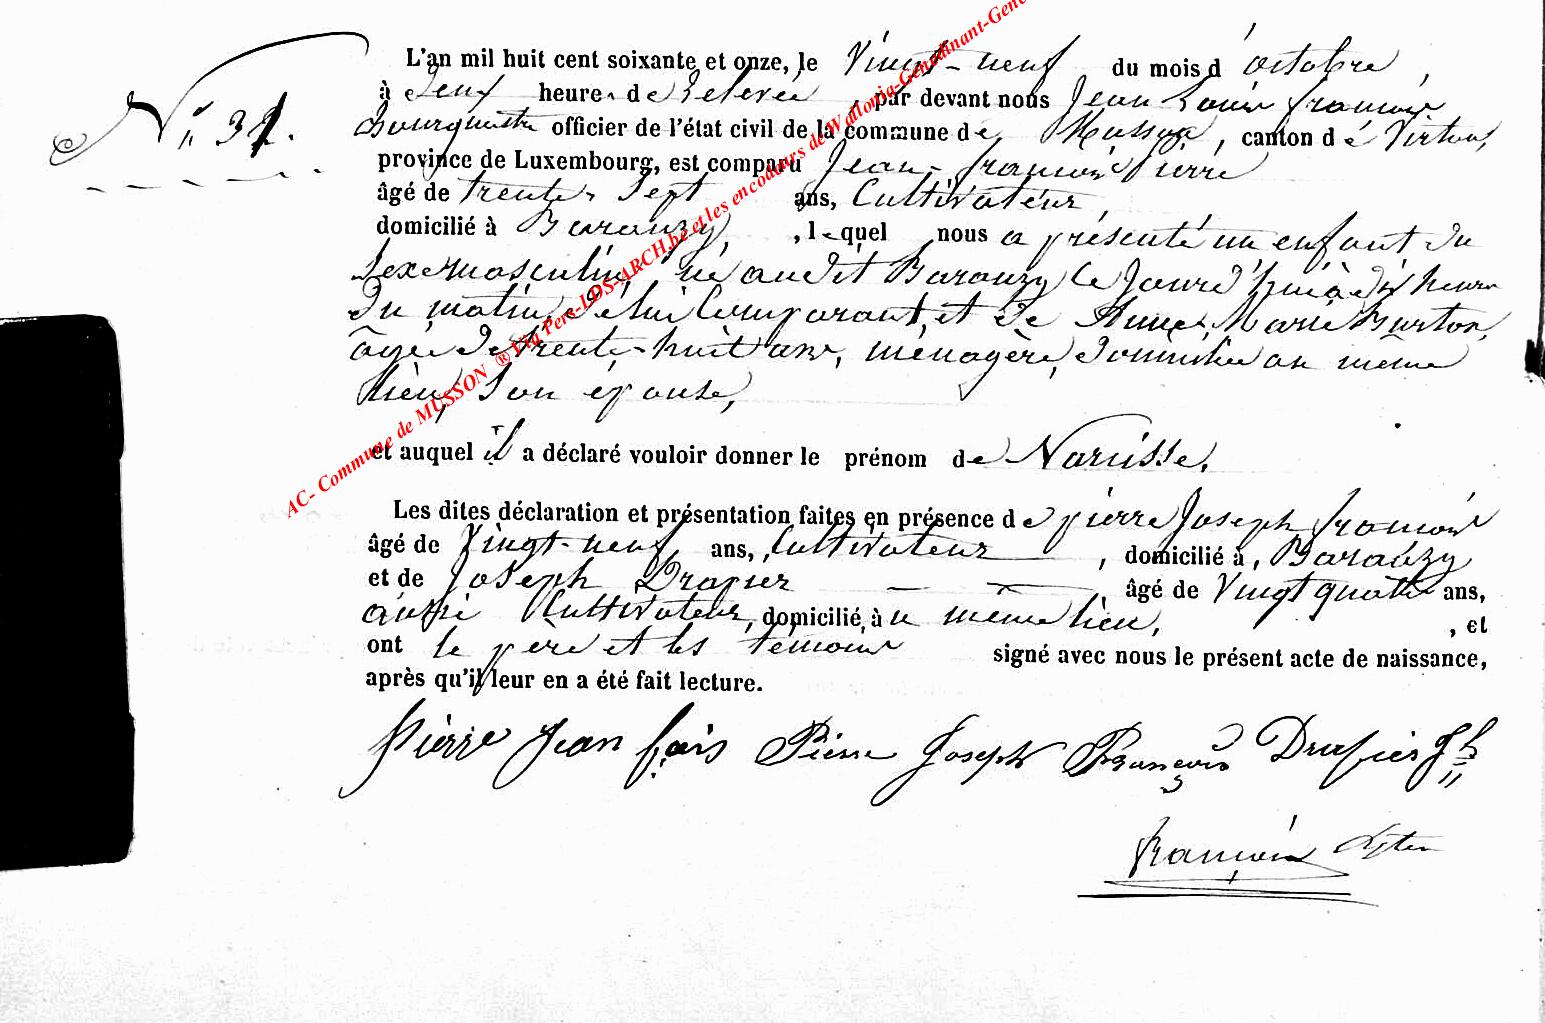 N° 31.
L'an mil huit cent soixante et onze, le Vingt-neuf du mois d'octobre,
à Deux heures de relevée, par devant nous Jean Louis françois
Bourgmestre officier de l'état civil de la commune de Musson, canton de Virton,
province de Luxembourg, est comparu Jean-françois Pierre
âgé de trente-sept ans, Cultivateur,
domicilié à Baranzy, lequel nous a présenté un enfant du
sexe masculin, né audit Baranzy ce jourd'hui à dix heures
du matin, de lui Comparant, et de Anne-Marie Burton,
âgée de trente-huit ans, ménagère, domiciliée au même
lieu, son épouse,
et auquel il a déclaré vouloir donner le prénom de Narcisse.
Les dites déclaration et présentation faites en présence de pierre Joseph françois
âgé de Vingt-neuf ans, Cultivateur, domicilié à, Baranzy
et de Joseph Drapier âgé de Vingt quatre ans,
aussi Cultivateur, domicilié, au même lieu, , et
ont le père et les témoins signé avec nous le présent acte de naissance,
après qu'il leur en a été fait lecture.
Pierre Jean fçois Pierre Joseph François Drapier Jh
françois
AC- Commune de MUSSON ® Via Pers-LDS-ARCH.be et les encodeurs de Wallonia-Genedinant-Gene